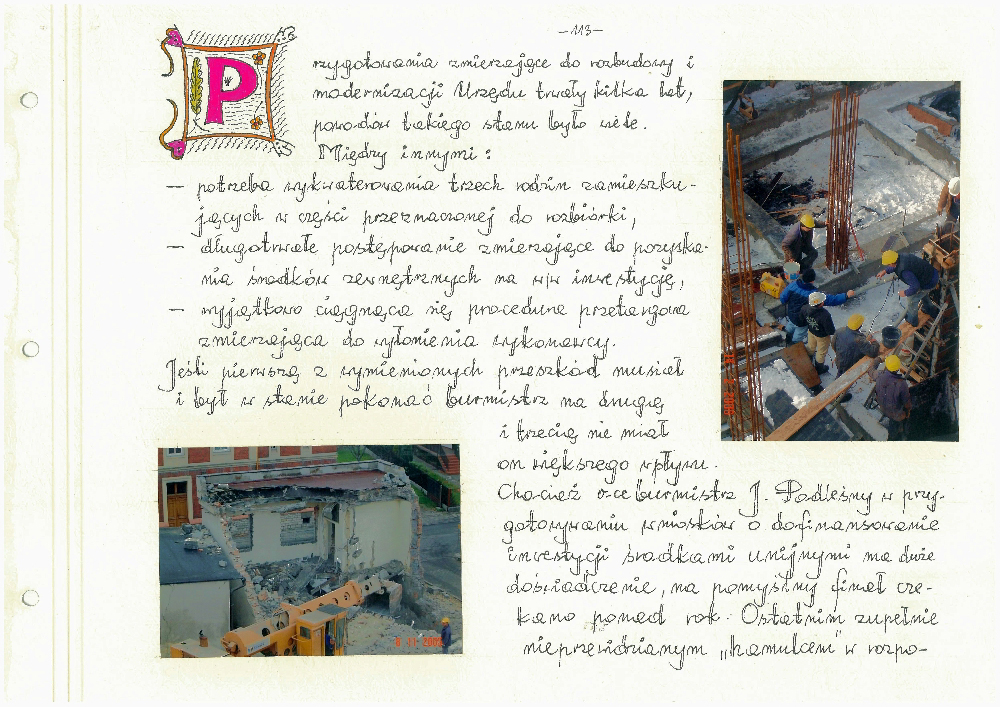 -113-
Przygotowania zmierzające do rozbudowy i
modernizacji Urzędu trwały kilka lat,
powodów takiego stanu było wiele.
Między innymi:
- potrzeba wykwaterowania trzech rodzin zamieszku-
jących w części przeznaczonej do rozbiórki,
- długotrwałe postępowanie zmierzające do pozyska-
nia środków zewnętrznych na w/w inwestycję,
- wyjątkowo ciągnąca się procedura przetargowa
zmierzająca do wyłonienia wykonawcy.
Jeśli pierwszą z wymienionych przeszkód musiał
i był w stanie pokonać burmistrz na drugą
i trzecią nie miał
on większego wpływu.
Chociaż v-ce burmistrz J. Podleśny w przy-
gotowywaniu wniosków o dofinansowanie
inwestycji środkami unijnymi ma duże
doświadczenie, na pomyślny finał cze-
kano ponad rok. Ostatnim zupełnie
nieprzewidzianym „hamulcem" w rozpo-
8 11 2005